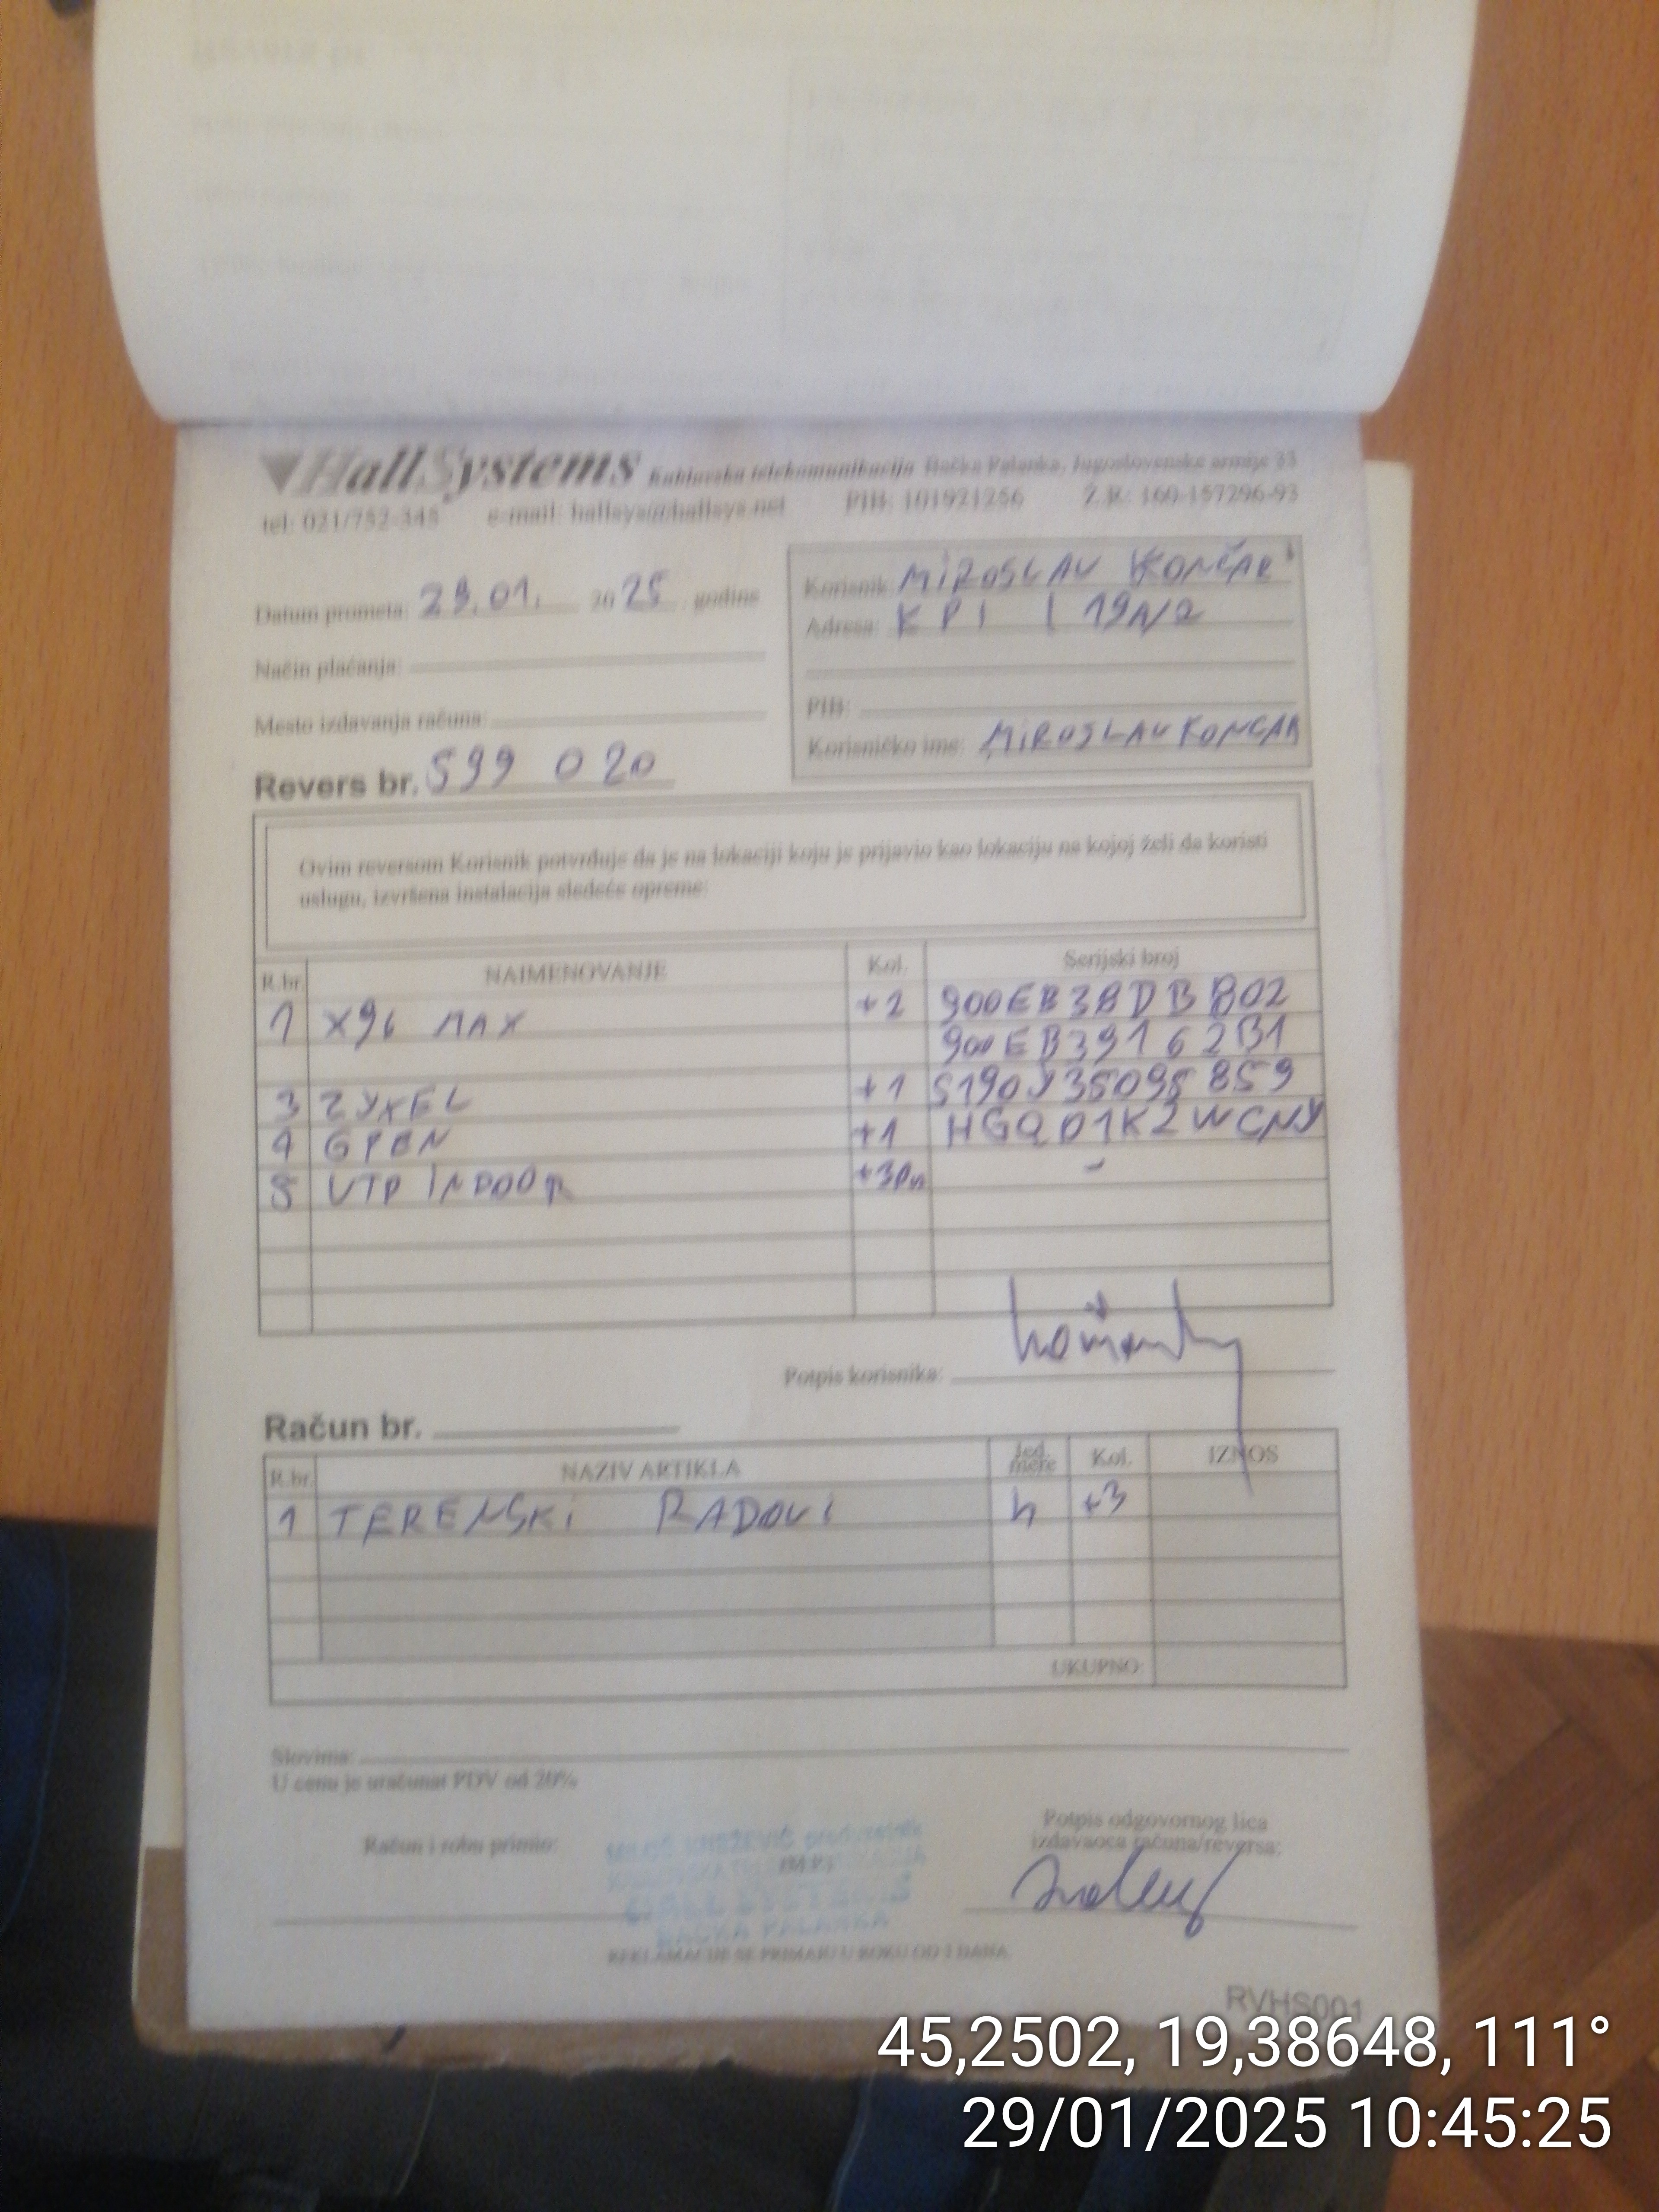 HallSystems Kablovska telekomunikacija Bačka Palanka, Jugoslovenske armije 33
tel: 021/752-345 e-mail: hallsys@hallsys.net PIB: 101921256 Ž.R: 160-157296-93
Datum prometa: 29.01. 2025 godine
Način plaćanja:
Mesto izdavanja računa:
Revers br. 599 020
Korisnik: MIROSLAV KONČAR
Adresa: KPI I 19A/2
PIB:
Korisničko ime: MIROSLAVKONCAR
Ovim reversom Korisnik potvrđuje da je na lokaciji koju je prijavio kao lokaciju na kojoj želi da koristi
uslugu, izvršena instalacija sledeće opreme:
R.br. NAIMENOVANJE Kol. Serijski broj
1 X96 MAX +2 900EB3BDBB02
900EB39162B1
3 ZYXEL +1 S190Y35095859
4 GPON +1 HGQD1K2WCNY
5 UTP INDOOR -
Potpis korisnika:
Račun br.
R.br. NAZIV ARTIKLA Jed. mere Kol. IZNOS
1 TERENSKI RADOVI h +3
UKUPNO:
Slovima:
U cenu je uračunat PDV od 20%
Račun i robu primio:
(M.P.)
Potpis odgovornog lica
izdavaoca računa/reversa:
HALL SYSTEMS
BAČKA PALANKA
REKLAMACIJE SE PRIMAJU U ROKU OD 3 DANA
RVHS001
45,2502, 19,38648, 111°
29/01/2025 10:45:25